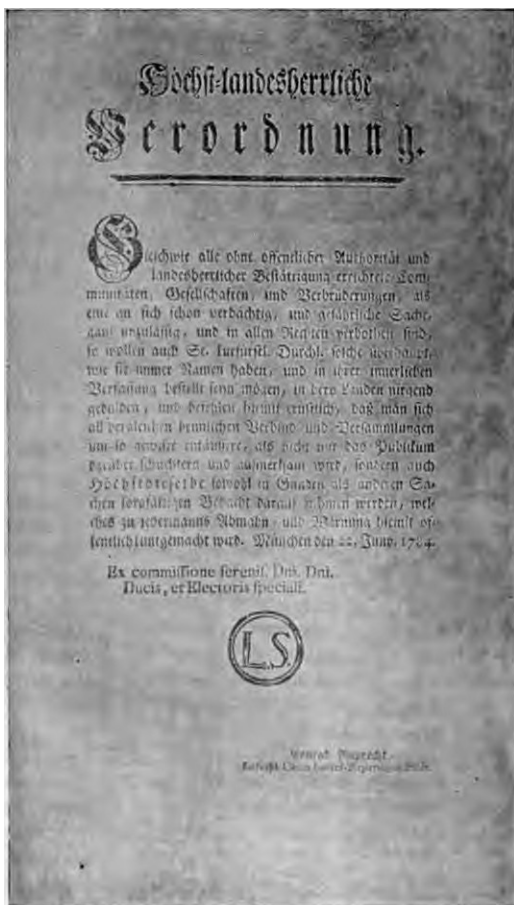 Höchst-landesherrliche
Verordnung.
Gleichwie alle ohne öffentlicher Authorität und
landesherrlicher Bestättigung errichtete Com-
munitäten, Gesellschaften, und Verbrüderungen, als
eine an sich schon verdächtig, und gefährliche Sache,
ganz unzuläßig, und in allen Rechten verbothen sind,
so wollen auch Se. kurfürstl. Durchl. solche überhaupt,
wie sie immer Namen haben, und in ihrer innerlichen
Verfassung bestellt seyn mögen, in dero Landen nirgend
gedulden, und befehlen hiemit ernstlich, daß man sich
all dergleichen heimlichen Verbind- und Versammlungen
um so gewisser entäußere, als nicht nur das Publikum
darüber schüchtern und aufmerksam wird, sondern auch
Höchstdieselbe sowohl in Gnaden als anderen Sa-
chen sorgfältigen Bedacht darauf nehmen werden, wel-
ches zu jedermanns Abmahn- und Warnung hiemit öf-
fentlich kuntgemacht wird. München den 22. Juny. 1784.
Ex commissione sereniss. Dni. Dni.
Ducis, et Electoris speciali.
L.S.